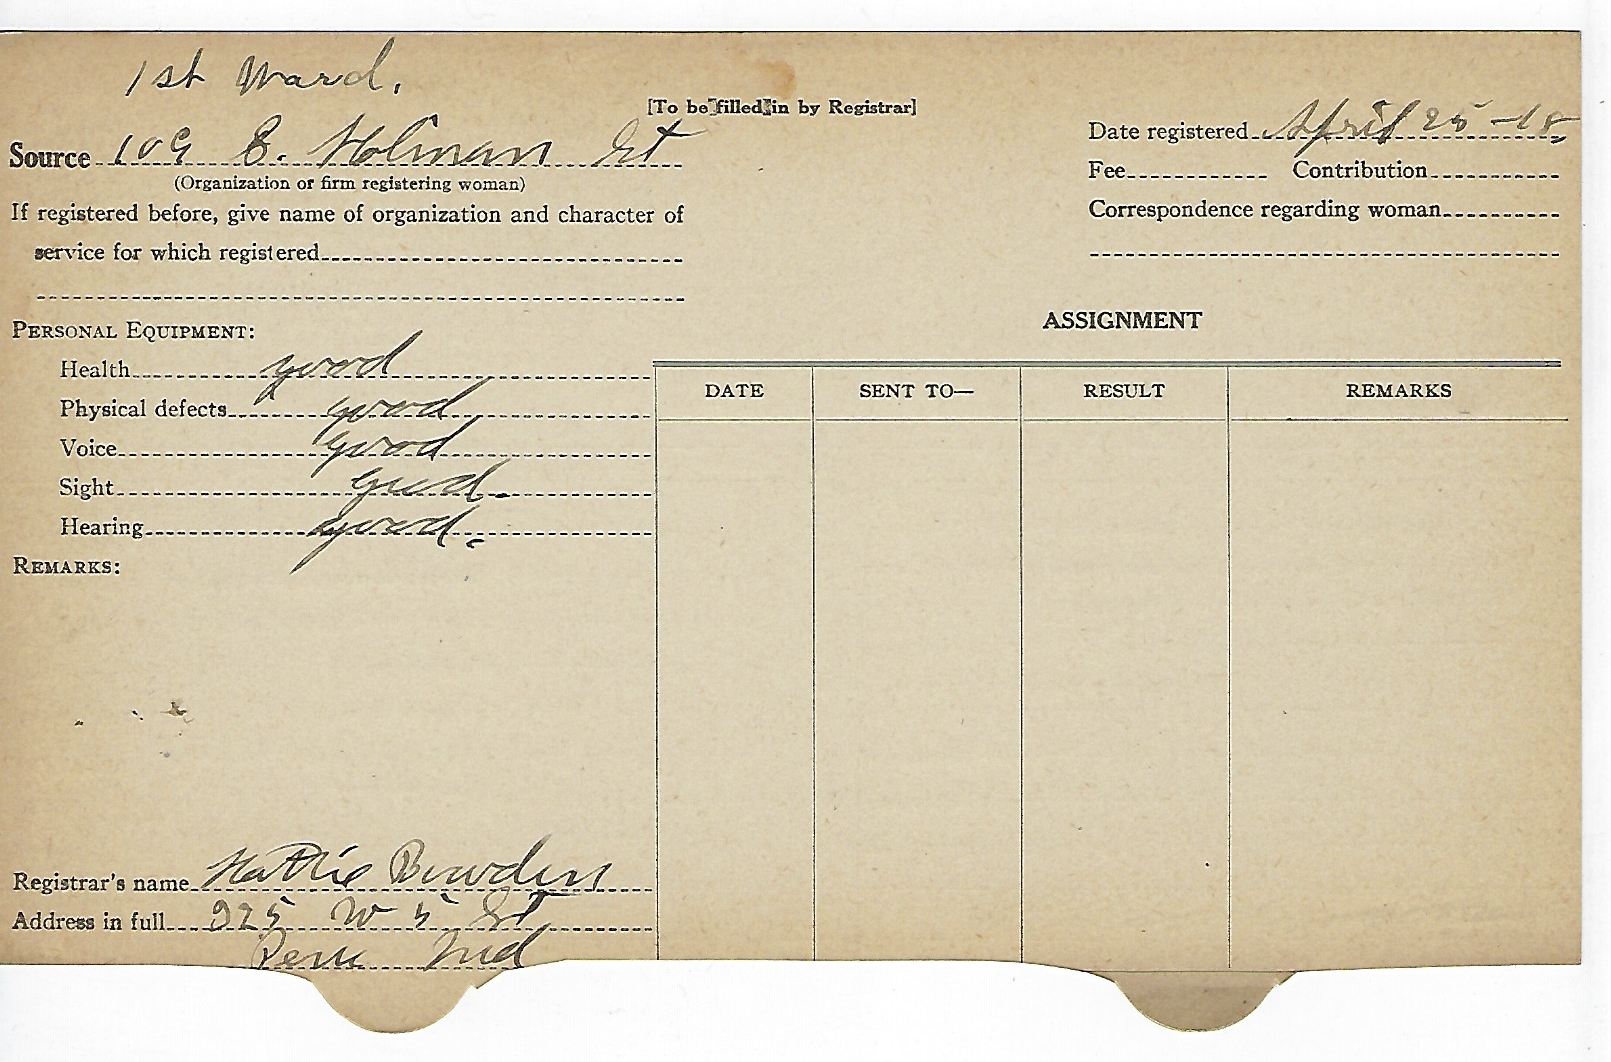 1st Ward.
[To be filled in by Registrar]
Source 109 E. Holman St
(Organization or firm registering woman)
If registered before, give name of organization and character of
service for which registered
Date registered April 25-18
Fee Contribution
Correspondence regarding woman
PERSONAL EQUIPMENT:
Health good
Physical defects good
Voice good
Sight good.
Hearing good.
REMARKS:
Registrar's name Hattie Bowden
Address in full 925 W 5 St
Peru Ind
ASSIGNMENT
DATE SENT TO— RESULT REMARKS